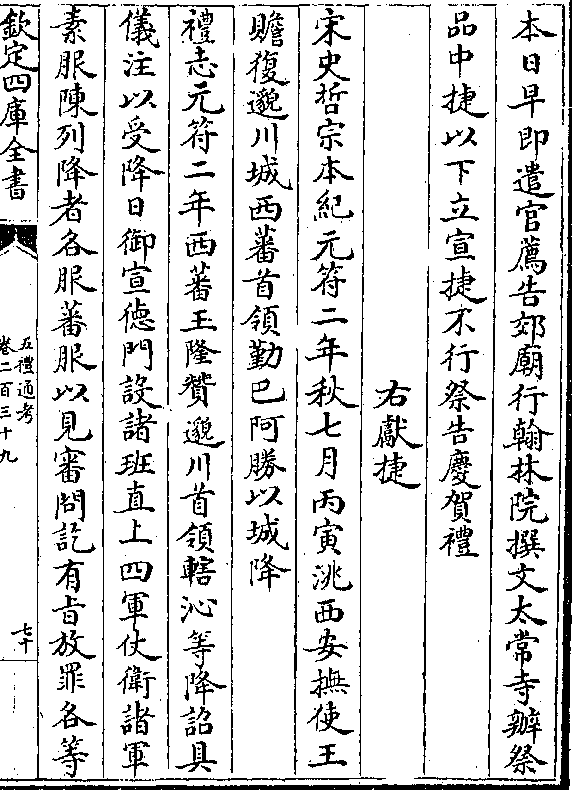 本日早即遣官薦告郊廟行翰林院撰文太常寺辦祭
品中捷以下立宣捷不行祭告慶賀禮
右獻捷
宋史哲宗本紀元符二年秋七月丙寅洮西安撫使王
贍復邈川城西蕃首領勤巴阿勝以城降
禮志元符二年西蕃王隆贊邈川首領轄沁等降詔具
儀注以受降日御宣德門設諸班直上四軍仗衛諸軍
素服陳列降者各服蕃服以見審問訖有旨放罪各等
欽定四庫全書
五禮通考
卷二百三十九
七十